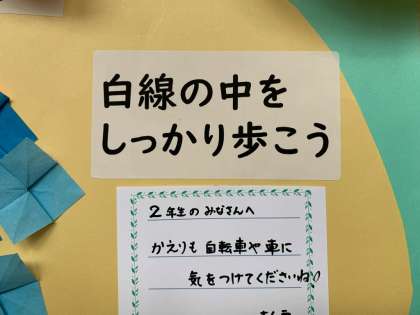 白線の中を
しっかり歩こう
2年生の みなさんへ
かえりも 自転車や 車に
気をつけてくださいね♡